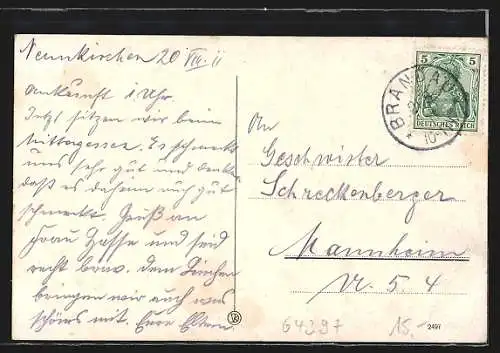 Neunkirchen 20 VIII. 11
Ankunft 1 Uhr.
Jetzt sitzen wir beim
Mittagessen. Es schmeckt
uns sehr gut und denke
daß es daheim auch gut
schmeckt. Gruß an
Frau Hasse und seid
recht brav. Dem
bringen wir auch was
schönes mit. Eure Eltern.
5 5
DEUTSCHES REICH
BRANDAU
* 10-
An
Geschwister
Schreckenberger
Mannheim
U. 5. 4
64397
15.-
2497